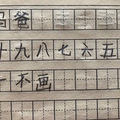 妈爸
十九八七六五
一不画